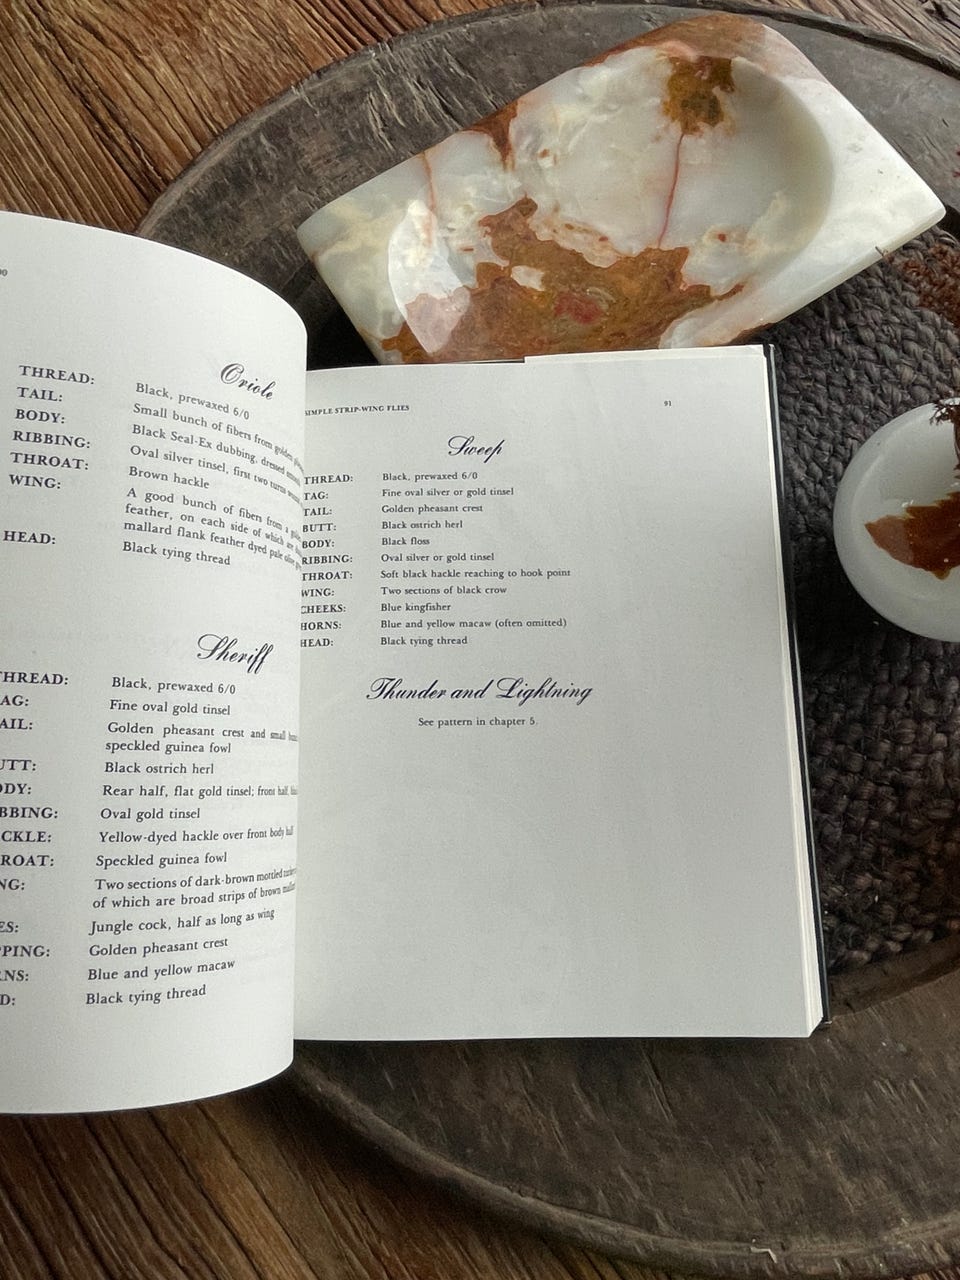 Oriole
THREAD: Black, prewaxed 6/0
TAIL: Small bunch of fibers from golden
BODY: Black Seal-Ex dubbing, dressed
RIBBING: Oval silver tinsel, first two turns
THROAT: Brown hackle
WING: A good bunch of fibers from a
feather, on each side of which are
mallard flank feather dyed pale olive
HEAD: Black tying thread
Sheriff
HREAD: Black, prewaxed 6/0
AG: Fine oval gold tinsel
AIL: Golden pheasant crest and small
speckled guinea fowl
UTT: Black ostrich herl
ODY: Rear half, flat gold tinsel; front half,
BBING: Oval gold tinsel
CKLE: Yellow-dyed hackle over front body half
ROAT: Speckled guinea fowl
NG: Two sections of dark-brown mottled
of which are broad strips of brown
ES: Jungle cock, half as long as wing
PPING: Golden pheasant crest
RNS: Blue and yellow macaw
D: Black tying thread
SIMPLE STRIP-WING FLIES 91
Sweep
THREAD: Black, prewaxed 6/0
TAG: Fine oval silver or gold tinsel
TAIL: Golden pheasant crest
BUTT: Black ostrich herl
BODY: Black floss
RIBBING: Oval silver or gold tinsel
THROAT: Soft black hackle reaching to hook point
WING: Two sections of black crow
CHEEKS: Blue kingfisher
HORNS: Blue and yellow macaw (often omitted)
HEAD: Black tying thread
Thunder and Lightning
See pattern in chapter 5.